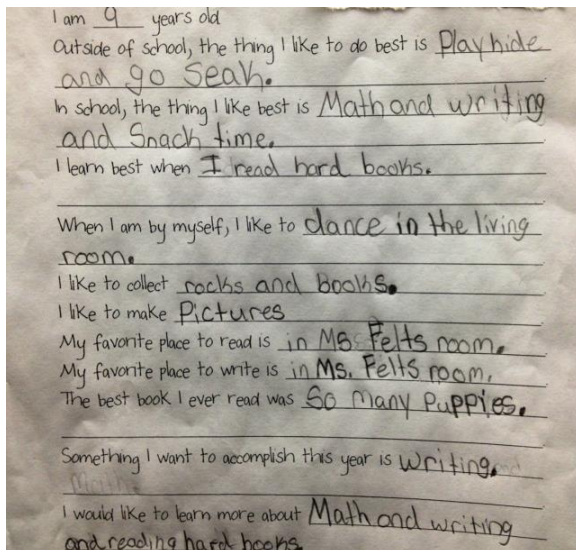 I am 9 years old
Outside of school, the thing I like to do best is Play hide
and go Seah.
In school, the thing I like best is Math and writing
and Snack time.
I learn best when I read hard books.
When I am by myself, I like to dance in the living
room.
I like to collect rocks and books.
I like to make Pictures
My favorite place to read is in MS Felts room.
My favorite place to write is in Ms. Felts room.
The best book I ever read was So many Puppies.
Something I want to accomplish this year is writing. and
Math.
I would like to learn more about Math and writing
and reading hard books